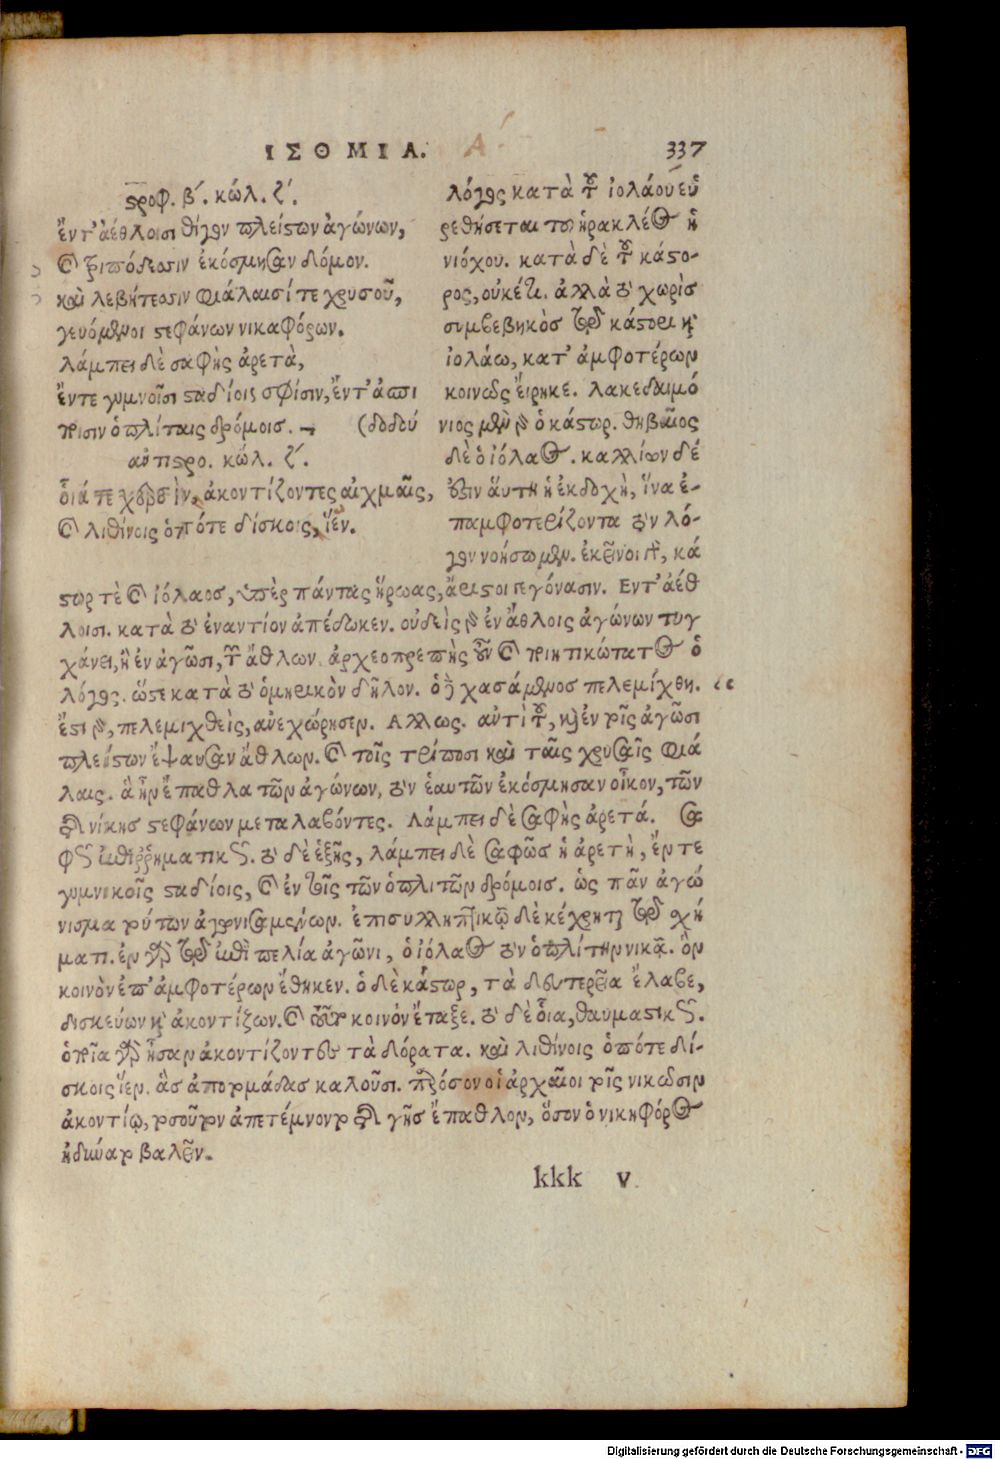 ΙΣΘΜΙΑ. Α. 337
στροφ. β΄. κώλ. ζ΄.
ἔντ' ἀέθλοισι θίγον πλείστων ἀγώνων,
καὶ τριπόδεσσιν ἐκόσμησαν δόμον.
καὶ λεβήτεσσιν φιάλαισί τε χρυσοῦ,
γευόμενοι στεφάνων νικαφόρων.
λάμπει δὲ σαφὴς ἀρετὰ,
ἔντε γυμνοῖσι σταδίοις σφίσιν, ἔντ' ἀσπι
(δοδού
τοισιν ὁπλίταις δρόμοισ.
ἀντιστρο. κώλ. ζ΄.
οἷά τε χερσὶν, ἀκοντίζοντες αἰχμαῖς,
καὶ λιθίνοις ὁπότε δίσκοις, ἵεν.
λόγος κατὰ τοῦ ἰολάου εὑ
ρεθήσεται τοῦ ἡρακλέος ἡ
νιόχου. κατὰ δὲ τοῦ κάστο-
ρος, οὐκέτι. ἀλλὰ τὸ χωρὶσ
συμβεβηκὸσ τῷ κάστορι καὶ
ἰολάω, κατ' ἀμφοτέρων
κοινῶς εἴρηκε. λακεδαιμό
νιος μὲν γὰρ ὁ κάστωρ. θηβαῖος
δὲ ὁ ἰόλαος. καλλίων δέ
ἐστιν αὕτη ἡ ἐκδοχὴ, ἵνα ἐ-
παμφοτερίζοντα τὸν λό-
γον νοήσωμεν. ἐκεῖνοι γὰρ, κά
στωρ τὲ καὶ ἰόλαοσ, ὑπὲρ πάντας ἥρωας, ἄριστοι γεγόνασιν. Εντ' ἀέθ
λοισι. κατὰ τὸ ἐναντίον ἀπέδωκεν. οὐδεὶς γὰρ ἐν ἄθλοις ἀγώνων τυγ
χάνει, ἢ ἐν ἀγῶσι, τῶν ἄθλων. ἀρχεοπρεπὴς οὖν καὶ ποιητικώτατος ὁ
λόγος. ὥστε κατὰ τὸ ὁμηρικὸν δῆλον. ὁ δὲ χασάμενος πελεμίχθη.
ἔστι γὰρ, πελεμιχθεὶς, ἀνεχώρησεν. Αλλως. ἀντὶ τοῦ, καὶ ἐν τοῖς ἀγῶσι
πλείστων ἔψαυσαν ἄθλων. καὶ τοῖς τρίποσι καὶ ταῖς χρυσαῖς φιά
λαις. ἃ ἦν ἔπαθλα τῶν ἀγώνων, τὸν ἑαυτῶν ἐκόσμησαν οἶκον, τῶν
διὰ νίκησ στεφάνων μεταλαβόντες. Λάμπει δὲ σαφὴς ἀρετά. σα
φὲς ἐπιῤῥηματικῶς. τὸ δὲ ἑξῆς, λάμπει δὲ σαφῶσ ἡ ἀρετὴ, ἔν τε
γυμνικοῖς σταδίοις, καὶ ἐν τοῖς τῶν ὁπλιτῶν δρόμοισ. ὡς πᾶν ἀγώ
νισμα τούτων ἀγωνισαμένων. ἐπισυλληπτικῷ δὲ κέχρηται τῷ σχή
ματι. ἐν γὰρ τῷ ἐπὶ πελία ἀγῶνι, ὁ ἰόλαος τὸν ὁπλίτην νικᾷ. ὃν
κοινὸν ἐπ' ἀμφοτέρων ἔθηκεν. ὁ δὲ κάστωρ, τὰ δευτερεῖα ἔλαβε,
δισκεύων καὶ ἀκοντίζων. καὶ τοῦτον κοινὸν ἔταξε. τὸ δὲ οἷα, θαυμαστικῶς.
ὁποῖα γὰρ ἦσαν ἀκοντίζοντες τὰ δόρατα. καὶ λιθίνοις ὁπότε δί-
σκοις ἵεν. ἃς ἀποτομάδας καλοῦσι. πρόσον οἱ ἀρχαῖοι τοῖς νικῶσιν
ἀκοντίῳ, τοσοῦτον ἀπετέμνοντο διὰ γῆσ ἔπαθλον, ὅσον ὁ νικηφόρος
ἠδύνατο βαλεῖν.
kkk v
Digitalisierung gefördert durch die Deutsche Forschungsgemeinschaft - DFG